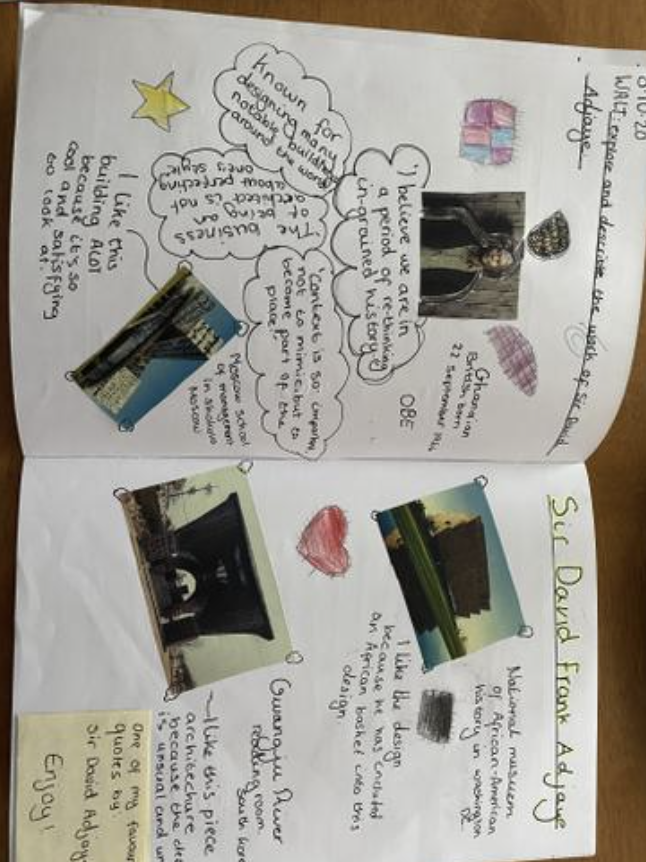 WALT: explore and describe the work of Sir David
Adjaye
Ghanaian
British born
22 September
OBE
"I believe we are in
a period of re-thinking
in-grained history"
Known for
designing many
notable buildings
around the world
"The business
of being an
architect is not
about perfecting
one's style"
"Context is so important,
not to mimic, but to
become part of the
place".
I like this
building ALOT
because it's so
cool and satisfying
too look at.
Moscow school
of management
in skolkovo
Moscow
Sir David Frank Adjaye
National museum
of African-American
history in washington
DC
I like the design
because he has included
an African basket into this
design.
Gwangju River
reading room.
South Kore
~I like this piece
architecture
because the de
is unusual and un
one of my favour
quotes by:
Sir David Adjay
Enjoy!